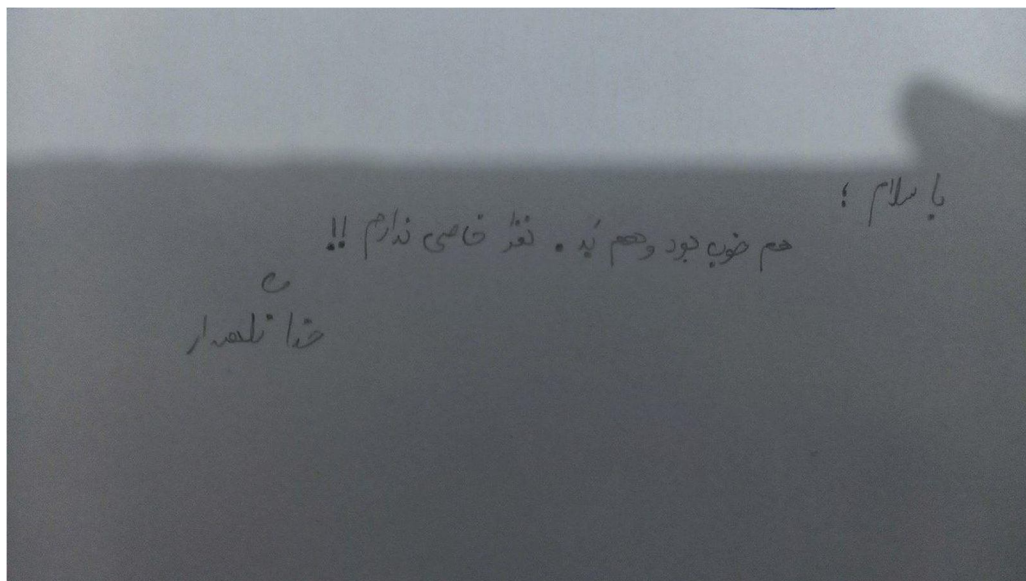 با سلام ؛
هم خوب بود و هم بد . نقد خاصی ندارم !!
خدا نگهدار